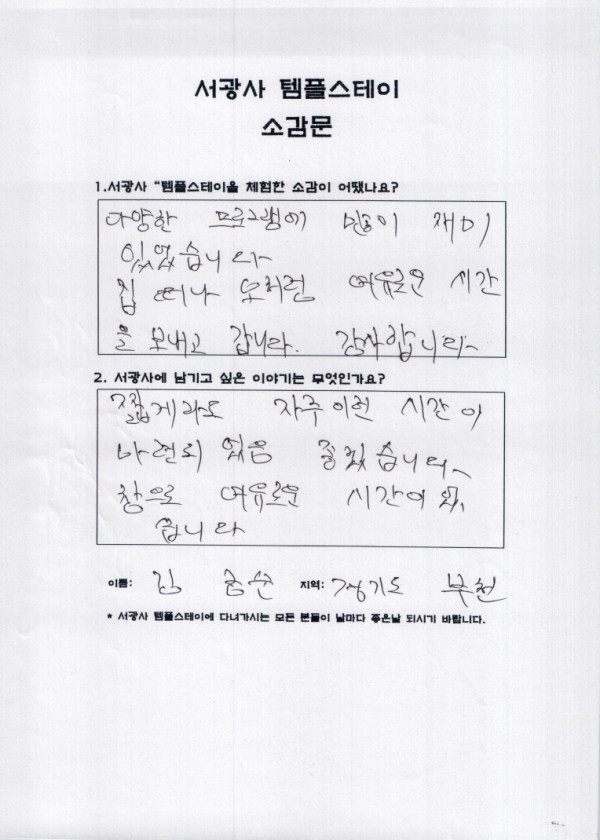 서광사 템플스테이
소감문
1.서광사 "템플스테이을 체험한 소감이 어땠나요?
다양한 프로그램에 많이 재미
있었습니다
집 떠나 모처럼 여유로운 시간
을 보내고 갑니다. 감사합니다
2. 서광사에 남기고 싶은 이야기는 무엇인가요?
짧게라도 자주 이런 시간이
마련되 었음 좋겠습니다
참으로 여유로운 시간이 였,
습니다
이름: 김 지역: 경기도 부천
* 서광사 템플스테이에 다녀가시는 모든 분들이 날마다 좋은날 되시기 바랍니다.